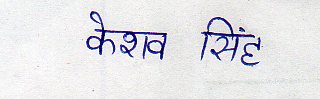 केशव सिंह